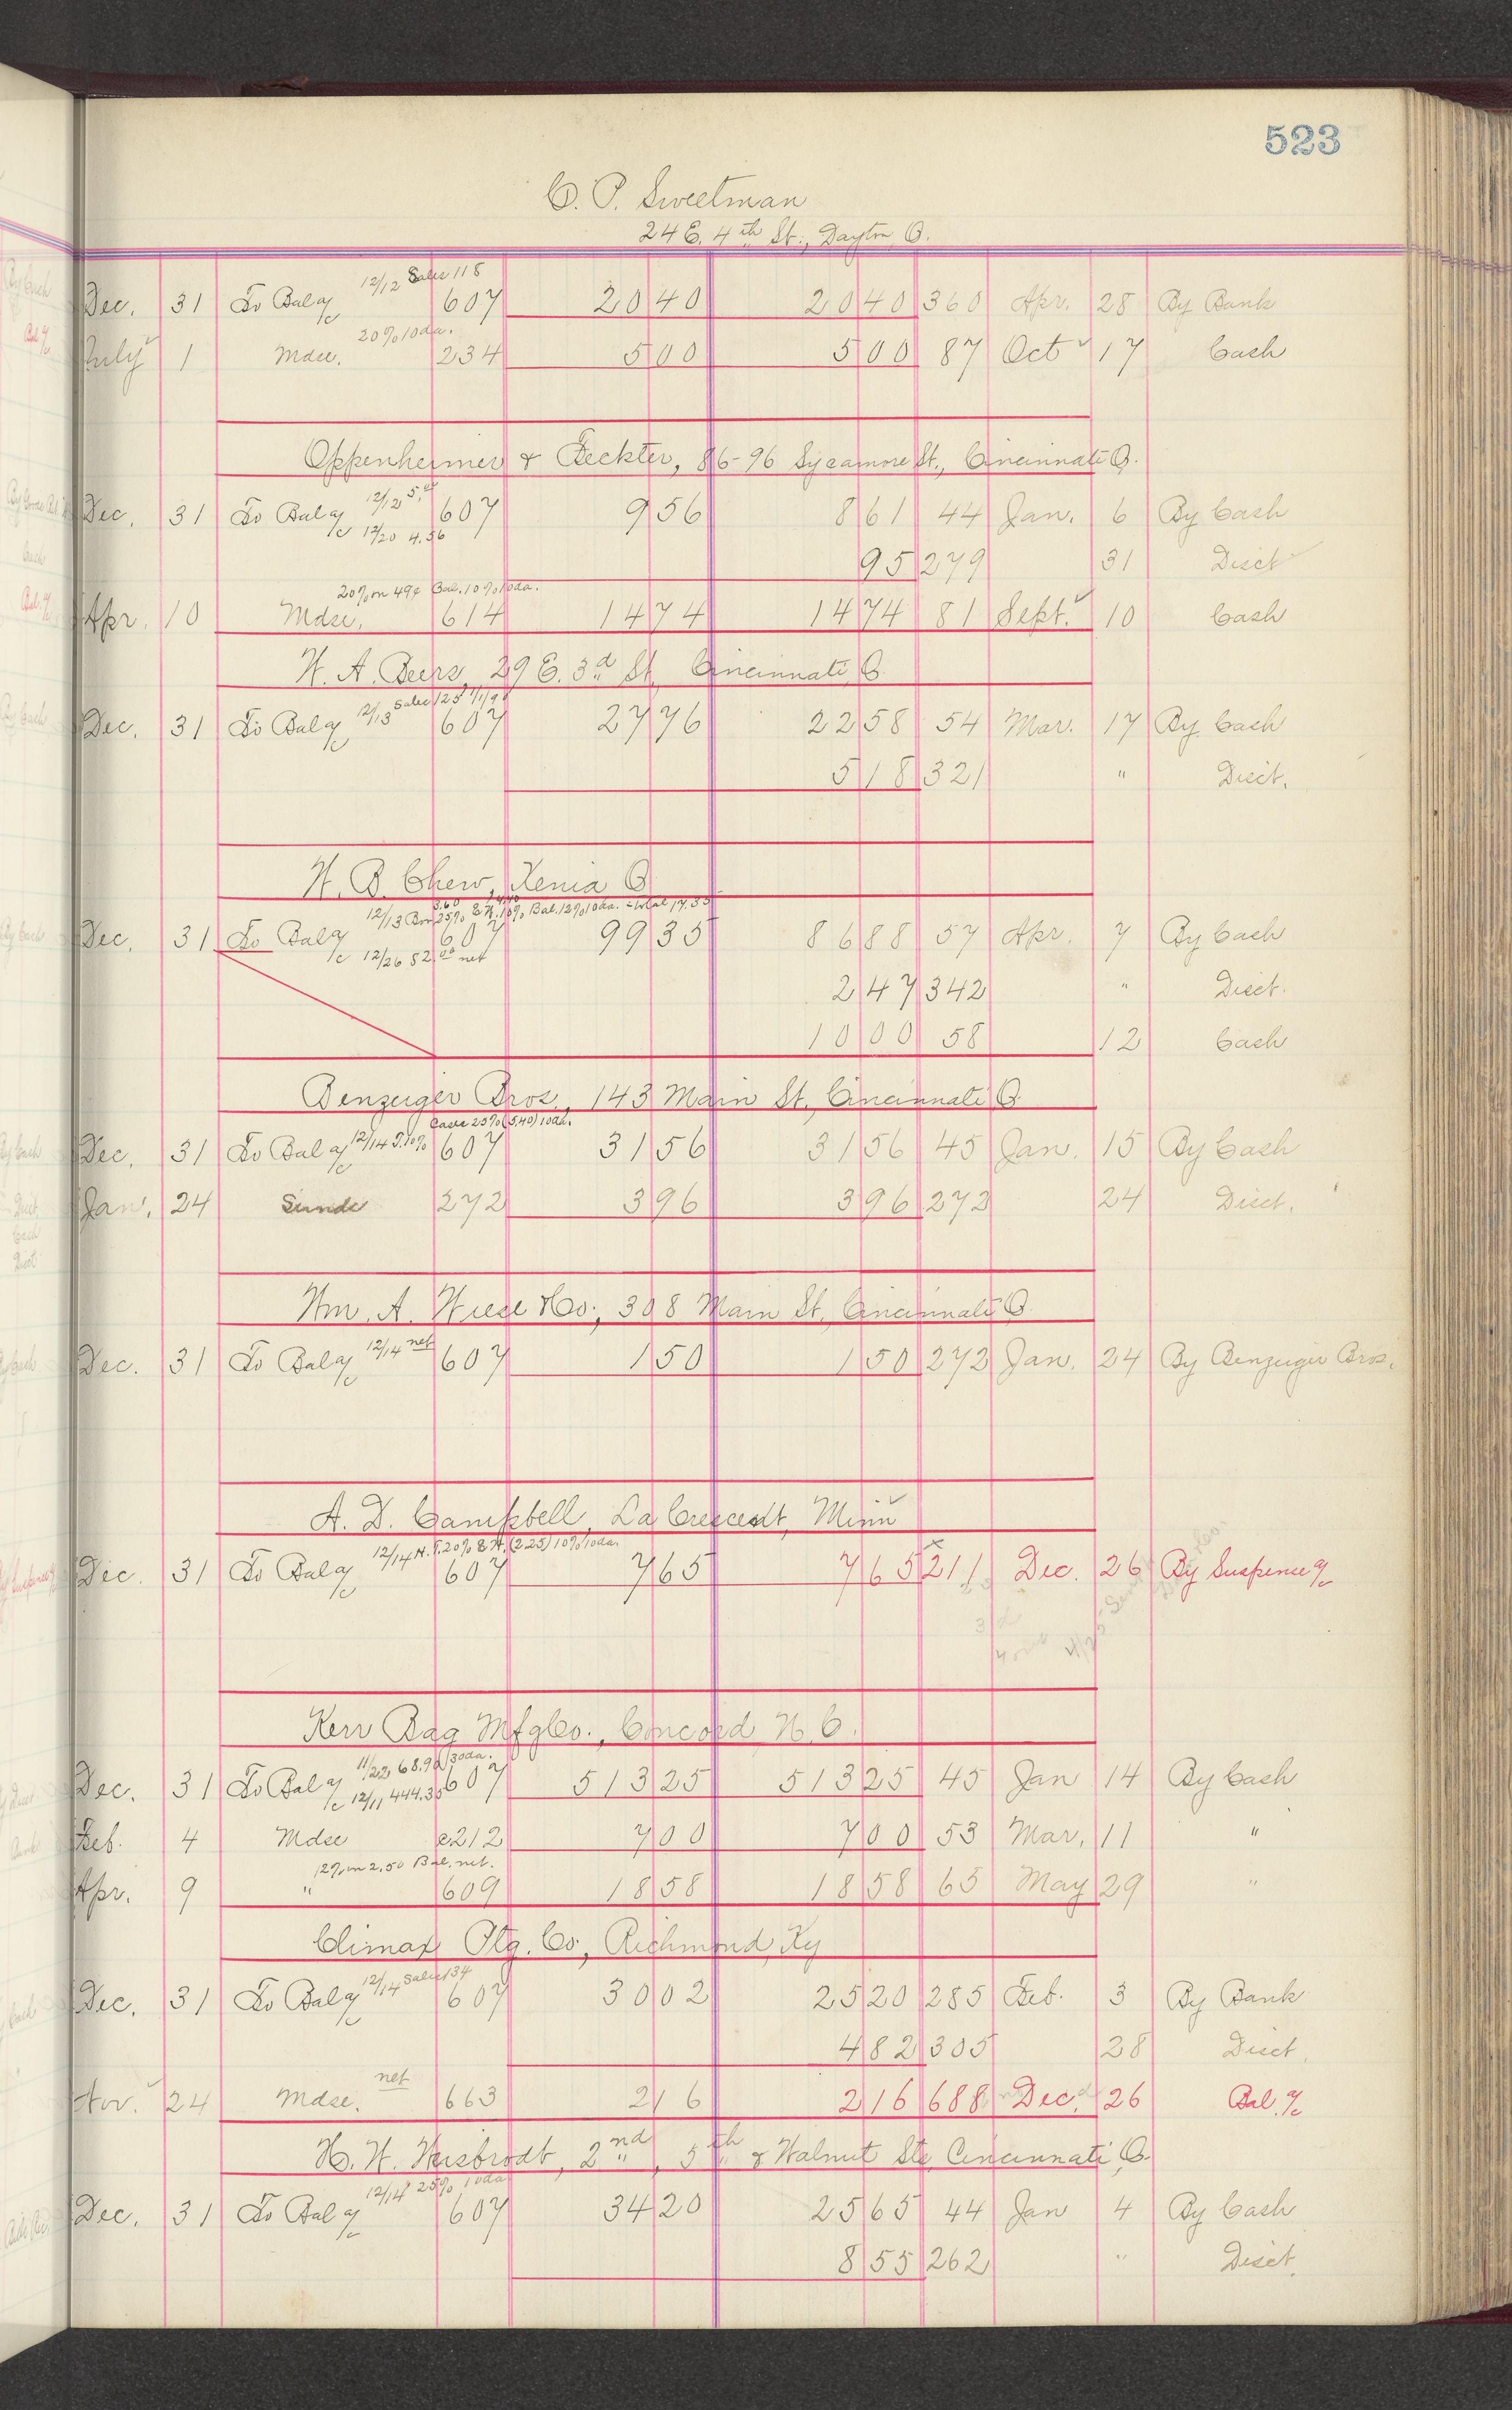 523
C. P. Sweetman
24 E. 4th St., Dayton, O.
12/12 Sales 118
Dec. 31 To Bal a/c 607 20 40 20 40 360 Apr. 28 By Bank
20% 10 da.
July 1 Mdse. 234 5 00 5 00 87 Oct 17 Cash
Oppenheimer & Feckter, 86-96 Sycamore St., Cincinnati O.
Dec. 31 To Bal a/c 12/12 5.00 607 9 56 8 61 44 Jan. 6 By Cash
12/20 4.56
95 279 31 Disct
20% on 49¢ Bal. 10% 10 da.
Apr. 10 Mdse. 614 14 74 14 74 81 Sept. 10 Cash
W. A. Beers, 29 E. 3rd St. Cincinnati O.
12/13 Sales 125
Dec. 31 To Bal a/c 607 27 76 22 58 54 Mar. 17 By Cash
5 18 321 " Disct.
W. B. Chew, Xenia O.
12/13 25% 10% Bal. 12% 10 da.
Dec. 31 To Bal a/c 607 99 35 86 88 57 Apr. 7 By Cash
12/26 82.00 net
2 47 342 " Disct.
10 00 58 12 Cash
Benzeiger Bros., 143 Main St., Cincinnati O.
25% (5.40) 10 da.
Dec. 31 To Bal a/c 12/14 10% 607 31 56 31 56 45 Jan. 15 By Cash
Jan. 24 Sunds 272 3 96 3 96 272 24 Disct.
Wm. A. Wiese & Co., 308 Main St., Cincinnati O.
Dec. 31 To Bal a/c 12/14 net 607 1 50 1 50 272 Jan. 24 By Benzeiger Bros.
A. D. Campbell, La Crescent, Minn
12/14 20% (2.25) 10% 10 da.
Dec. 31 To Bal a/c 607 7 65 7 65 211 Dec. 26 By Suspense a/c
Kerr Bag Mfg Co., Concord N. C.
11/22 68.90 30 da.
Dec. 31 To Bal a/c 607 513 25 513 25 45 Jan 14 By Cash
12/11 444.35
Feb. 4 Mdse 212 7 00 7 00 53 Mar. 11 "
2% on 2.50 Bal. net.
Apr. 9 " 609 18 58 18 58 65 May 29 "
Climax Ptg. Co., Richmond, Ky
12/14 Sales 134
Dec. 31 To Bal a/c 607 30 02 25 20 285 Feb. 3 By Bank
4 82 305 28 Disct.
Nov. 24 Mdse. net 663 2 16 2 16 688 Dec. 26 Bal. a/c
H. W. Weisbrodt, 2nd, 5th & Walnut Sts, Cincinnati, O.
12/14 25% 10 da
Dec. 31 To Bal a/c 607 34 20 25 65 44 Jan 4 By Cash
8 55 262 " Disct.